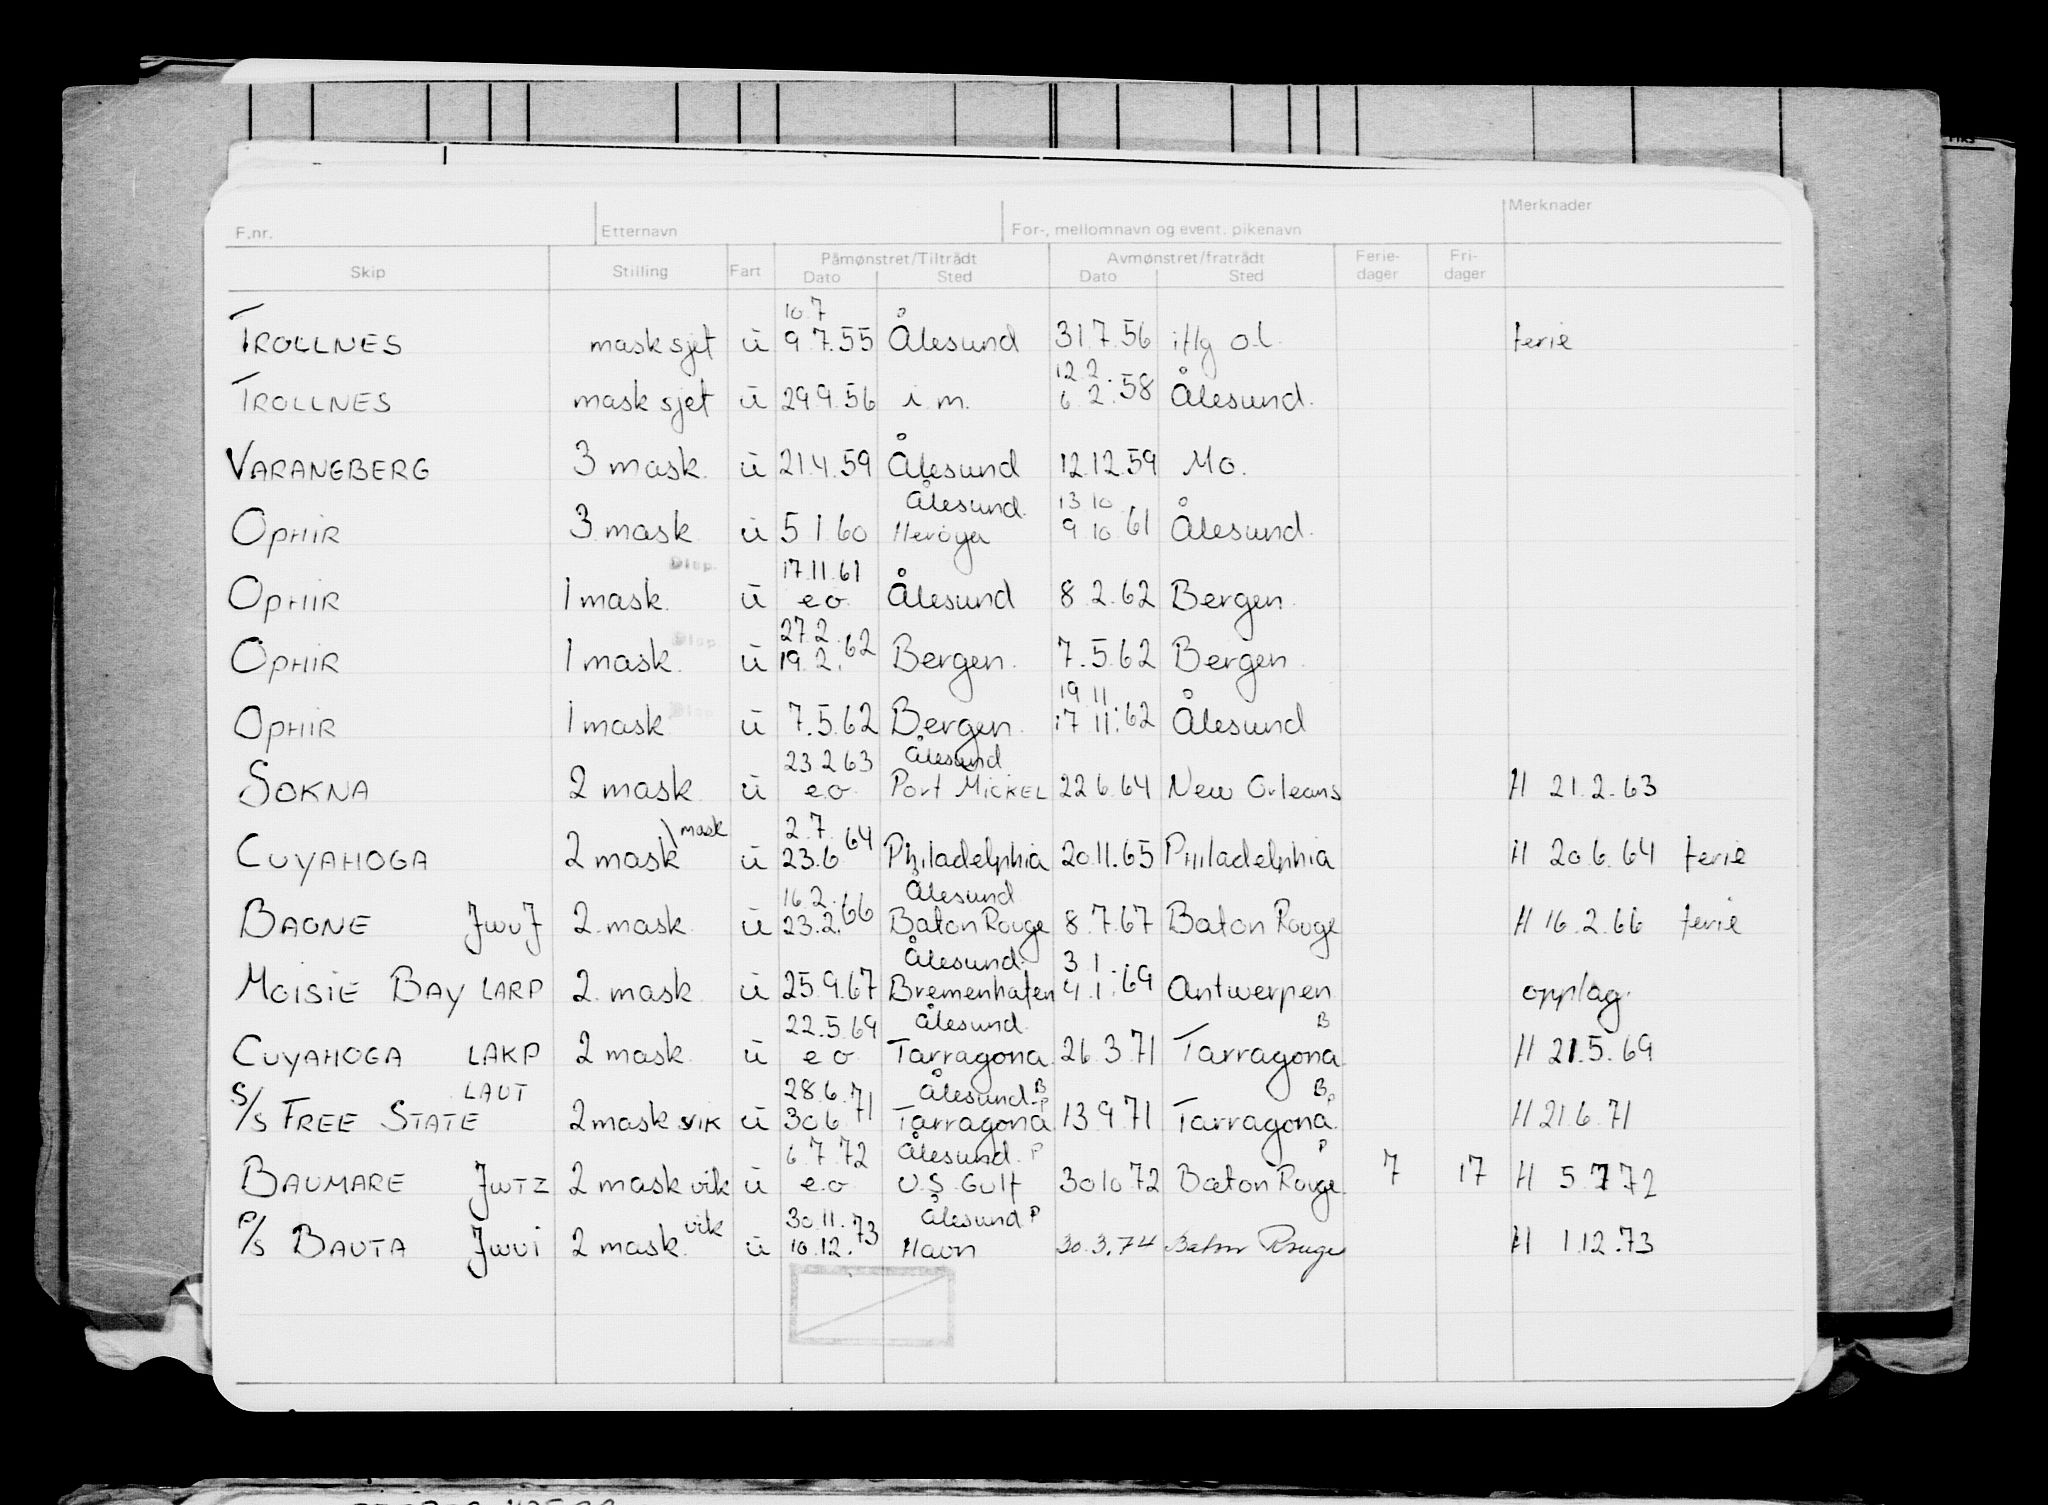 Merknader
F.nr. Etternavn For-, mellomnavn og event. pikenavn
Skip Stilling Fart Påmønstret/Tiltrådt Dato Sted Avmønstret/fratrådt Dato Sted Ferie-dager Fri-dager
10.7
TROLLNES mask sjef u 9.7.55 Ålesund 31.7.56 iflg o.l. ferie
12.2.
TROLLNES mask sjef u 29.9.56 i.m. 6.2.58 Ålesund.
VARANGBERG 3 mask. u 21.4.59 Ålesund 12.12.59 Mo.
Ålesund. 13 10
OPHIR 3 mask u 5 1 60 Herøya 9 10 61 Ålesund.
Disp. 17.11.61
OPHIR 1 mask. u e.o. Ålesund 8.2.62 Bergen.
Disp. 27.2.
OPHIR 1 mask. u 19.2.62 Bergen. 7.5.62 Bergen.
Disp. 19 11
OPHIR 1 mask u 7.5.62 Bergen. 17 11.62 Ålesund
23 2 63 Ålesund
SOKNA 2 mask. u e.o. Port MICKEL 22 6.64 New Orleans H 21.2.63
mask 2.7.
CUYAHOGA 2 mask u 23.6 64 Philadelphia 20.11.65 Philadelphia H 20.6.64 ferie
16.2. Ålesund
BAGNE JWUJ 2 mask. u 23.2.66 Baton Rouge 8.7.67 Baton Rouge H 16.2.66 ferie
Ålesund. 3 1
MOISIE BAY LARP 2. mask. u 25.9.67 Bremenhafen 4.1.69 Antwerpen opplag.
22.5.69 Ålesund. B
CUYAHOGA LAKP 2 mask. u e o Tarragona. 26.3.71 Tarragona H 21.5.69
LAUT 28.6. Ålesund. B P B P
S/S FREE STATE 2 mask vik u 30 6.71 Tarragona 13.9.71 Tarragona. H 21 6.71
6.7.72 Ålesund. P P
BAUMARE JWTZ 2 mask vik u e.o U.S. Gulf 30 10 72 Baton Rouge. 7 17 H 5.7 72
vik 30.11. Ålesund P
P/S BAUTA JWUI 2 mask. u 10.12.73 Havn 30.3.74 Baton Rouge H 1.12.73